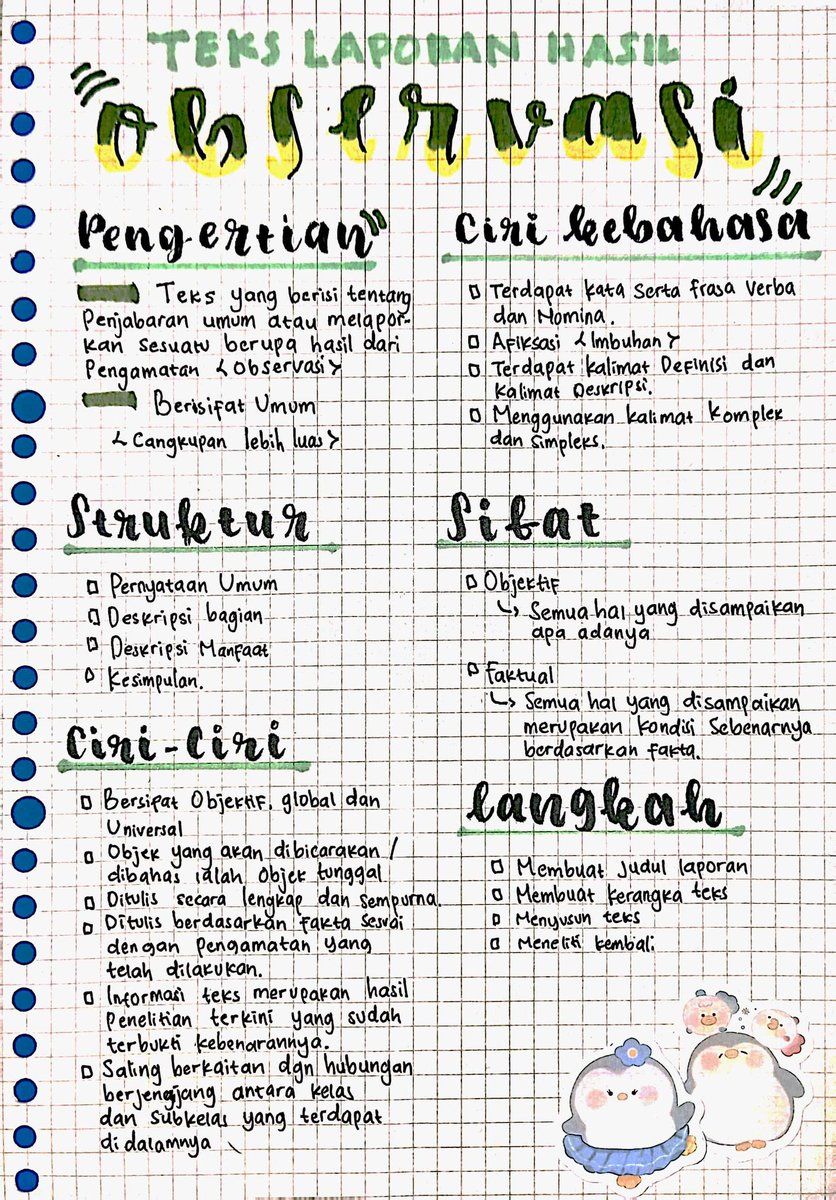 TEKS LAPORAN HASIL
Observasi
Pengertian
Teks yang berisi tentang
Penjabaran umum atau melapor-
kan sesuatu berupa hasil dari
Pengamatan <Observasi>
Berisifat Umum
<Cangkupan lebih luas>
Struktur
Pernyataan Umum
Deskripsi bagian
Deskripsi Manfaat
Kesimpulan.
Ciri-Ciri
Bersifat Objektif, global dan
Universal
Objek yang akan dibicarakan /
dibahas ialah Objek tunggal
Ditulis secara lengkap dan sempurna.
Ditulis berdasarkan fakta sesuai
dengan pengamatan yang
telah dilakukan.
Informasi teks merupakan hasil
Penelitian terkini yang sudah
terbukti kebenarannya.
Saling berkaitan dgn hubungan
berjengjjang antara kelas
dan subkelas yang terdapat
didalamnya
Ciri kebahasa
Terdapat kata serta frasa Verba
dan Nomina.
Afiksasi <Imbuhan>
Terdapat kalimat Definisi dan
Kalimat Deskripsi.
Menggunakan kalimat Komplek
dan Simpleks.
Sifat
Objektif
Semua hal yang disampaikan
apa adanya
Faktual
Semua hal yang disampaikan
merupakan kondisi Sebenarnya
berdasarkan fakta.
langkah
Membuat Judul laporan
Membuat kerangka teks
Menyusun teks
Meneliti kembali.